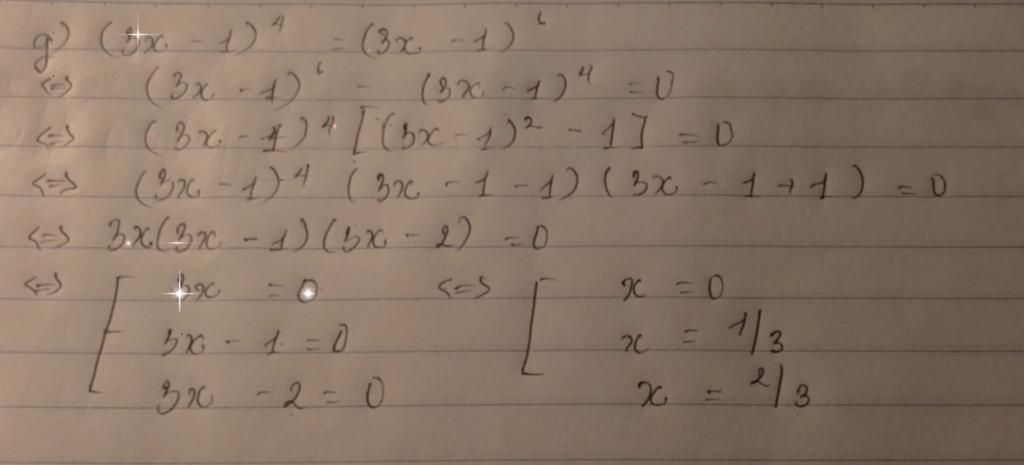 g) (3x - 1)⁴ = (3x - 1)⁶
<=> (3x - 1)⁶ - (3x - 1)⁴ = 0
<=> (3x - 1)⁴ [(3x - 1)² - 1] = 0
<=> (3x - 1)⁴ (3x - 1 - 1) (3x - 1 + 1) = 0
<=> 3x(3x - 1)(3x - 2) = 0
<=> [ 3x = 0 <=> [ x = 0
3x - 1 = 0 x = 1/3
3x - 2 = 0 x = 2/3